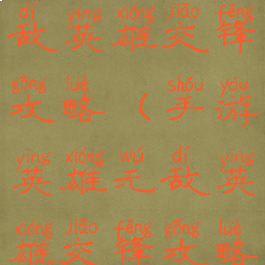 dí yīng xióng jiāo fēng
敌英雄交锋
gōng lüè shǒu yóu
攻略（手游
yīng xióng wú dí yīng
英雄无敌英
xióng jiāo fēng gōng lüè
雄交锋攻略